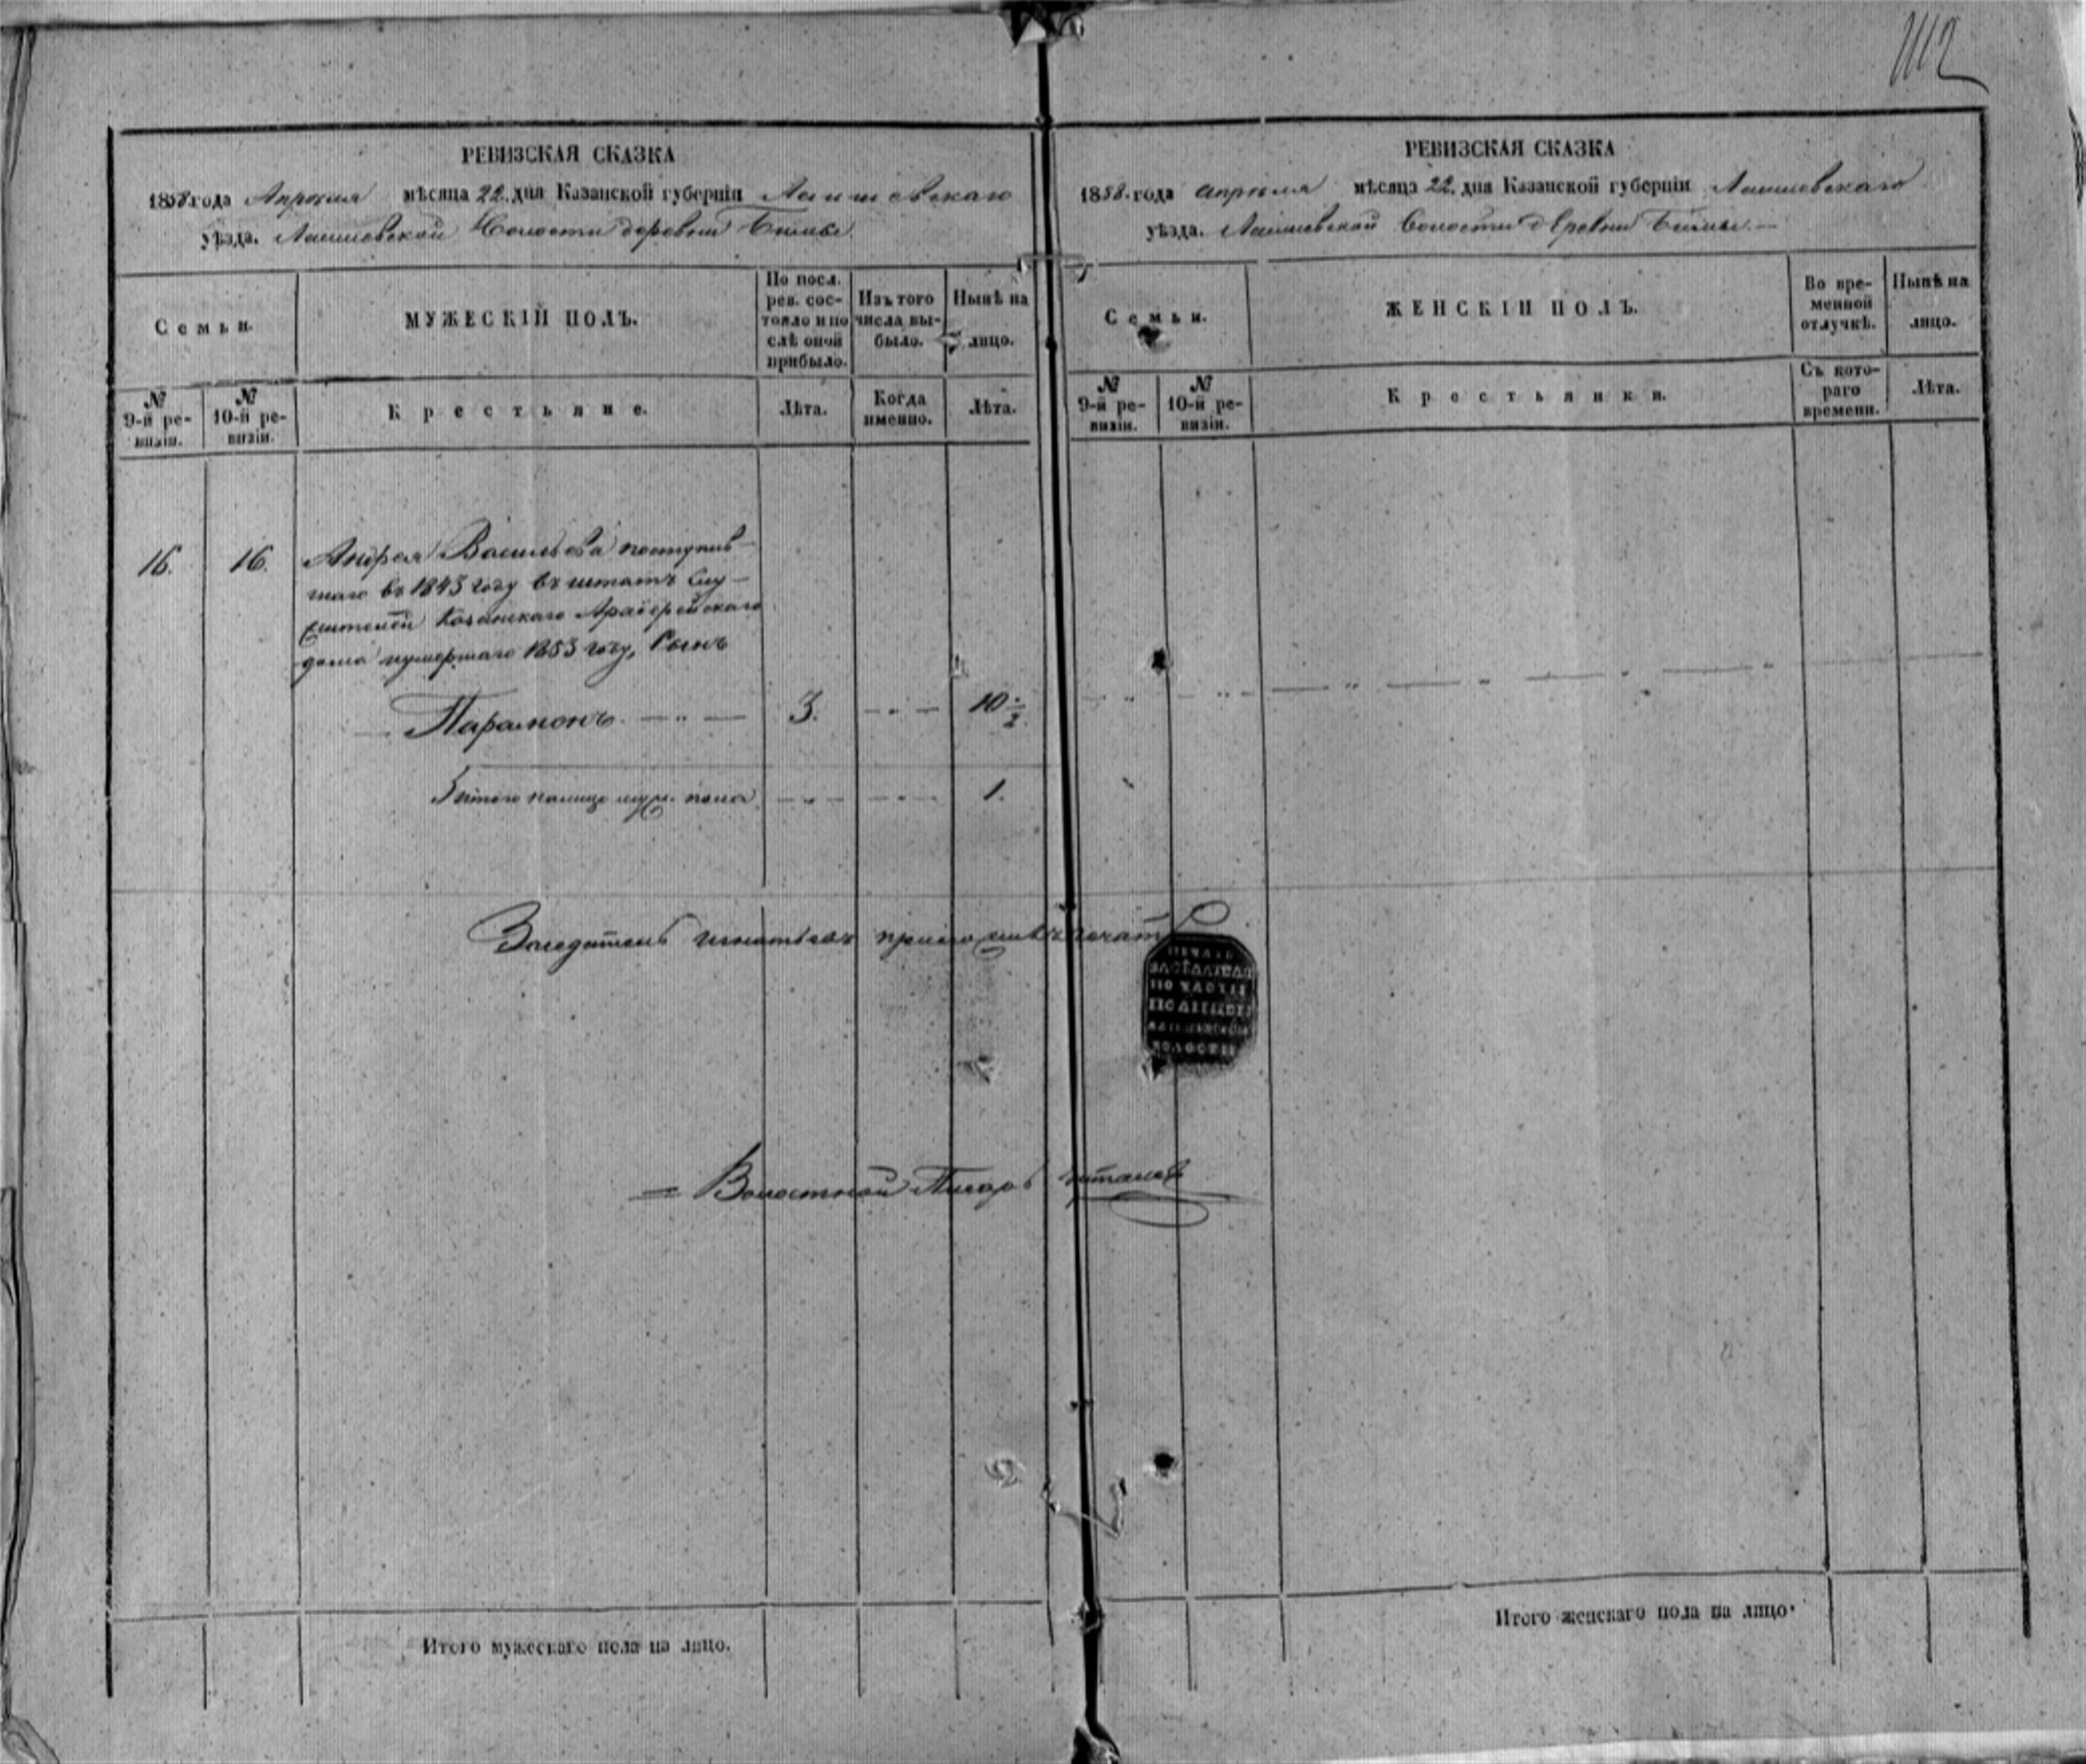 1112
РЕВИЗСКАЯ СКАЗКА
1858 года Апреля мѣсяца 22. дня Казанской губерніи Лаишевскаго
уѣзда. Лаишевской Волости деревни
Семьи.
МУЖЕСКІЙ ПОЛЪ.
По посл. рев. сос-
тояло и по
слѣ оной
прибыло.
Изъ того
числа вы-
было.
Нынѣ на
лицо.
№
9-й ре-
визіи.
№
10-й ре-
визіи.
Крестьяне.
Лѣта.
Когда
именно.
Лѣта.
16. 16. Андрея Васильева поступив-
шаго въ 1843 году въ штатъ слу-
жителей Казанскаго Архіерейскаго
дома умершаго 1853 году, Сынъ
Парамонъ. 3. 10 1/2.
Итого налицо муж. пола 1.
Заседатель Игнатьевъ приложилъ печать
Волостной Писарь
Итого мужескаго пола на лицо.
РЕВИЗСКАЯ СКАЗКА
1858. года апреля мѣсяца 22. дня Казанской губерніи Лаишевскаго
уѣзда. Лаишевской Волости деревни
Семьи.
ЖЕНСКІЙ ПОЛЪ.
Во вре-
менной
отлучкѣ.
Нынѣ на
лицо.
№
9-й ре-
визіи.
№
10-й ре-
визіи.
Крестьянки.
Съ кото-
раго
времени.
Лѣта.
ПЕЧАТЬ
ЗАСѢДАТЕЛЯ
ПО ЧАСТИ
ВОЛОСТИ
Итого женскаго пола на лицо.